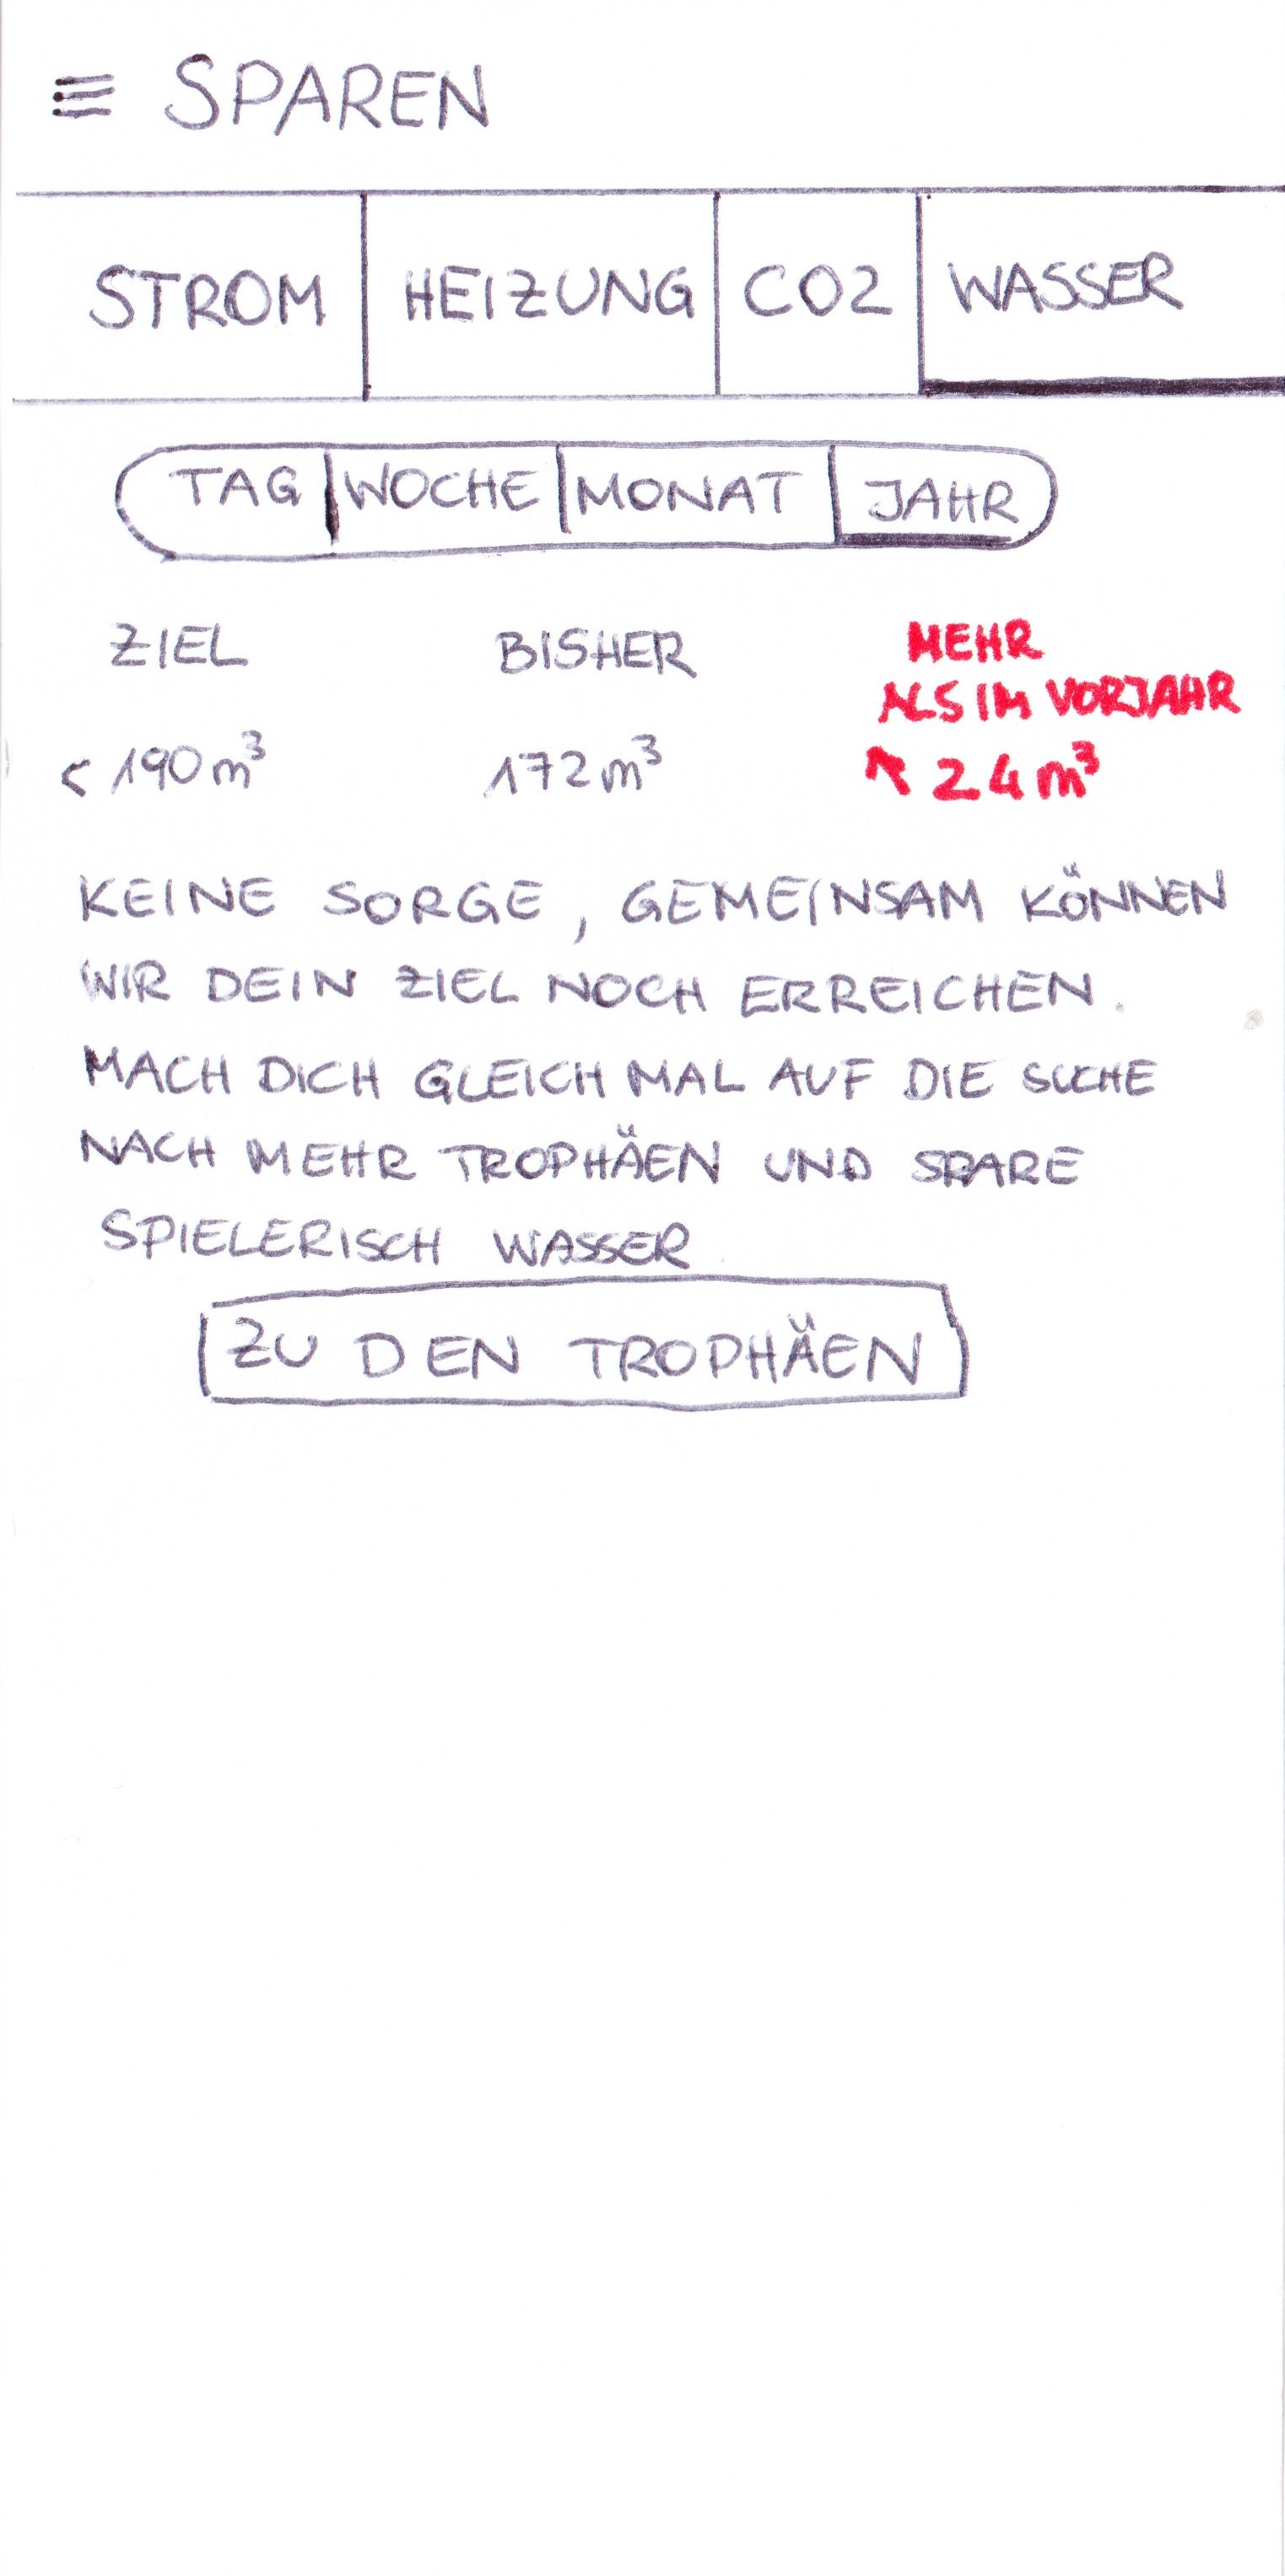 SPAREN
STROM HEIZUNG CO2 WASSER
TAG WOCHE MONAT JAHR
ZIEL BISHER MEHR
ALS IM VORJAHR
< 190 m³ 172 m³ ↑ 24 m³
KEINE SORGE, GEMEINSAM KÖNNEN
WIR DEIN ZIEL NOCH ERREICHEN.
MACH DICH GLEICH MAL AUF DIE SUCHE
NACH MEHR TROPHÄEN UND SPARE
SPIELERISCH WASSER
ZU DEN TROPHÄEN